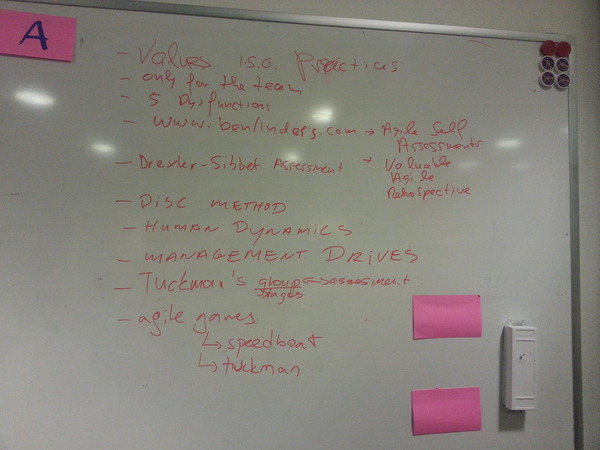 A
- Values i.s.o. Practices
- only for the team
- 5 Dysfunctions
- www.benlinders.com → Agile Self Assessments
→ Valuable Agile Retrospective
- Drexler-Sibbet Assessment
- DISC METHOD
- HUMAN DYNAMICS
- MANAGEMENT DRIVES
- Tuckman's group stages ↔ assesment
- agile games
↳ speedboat
↳ tuckman